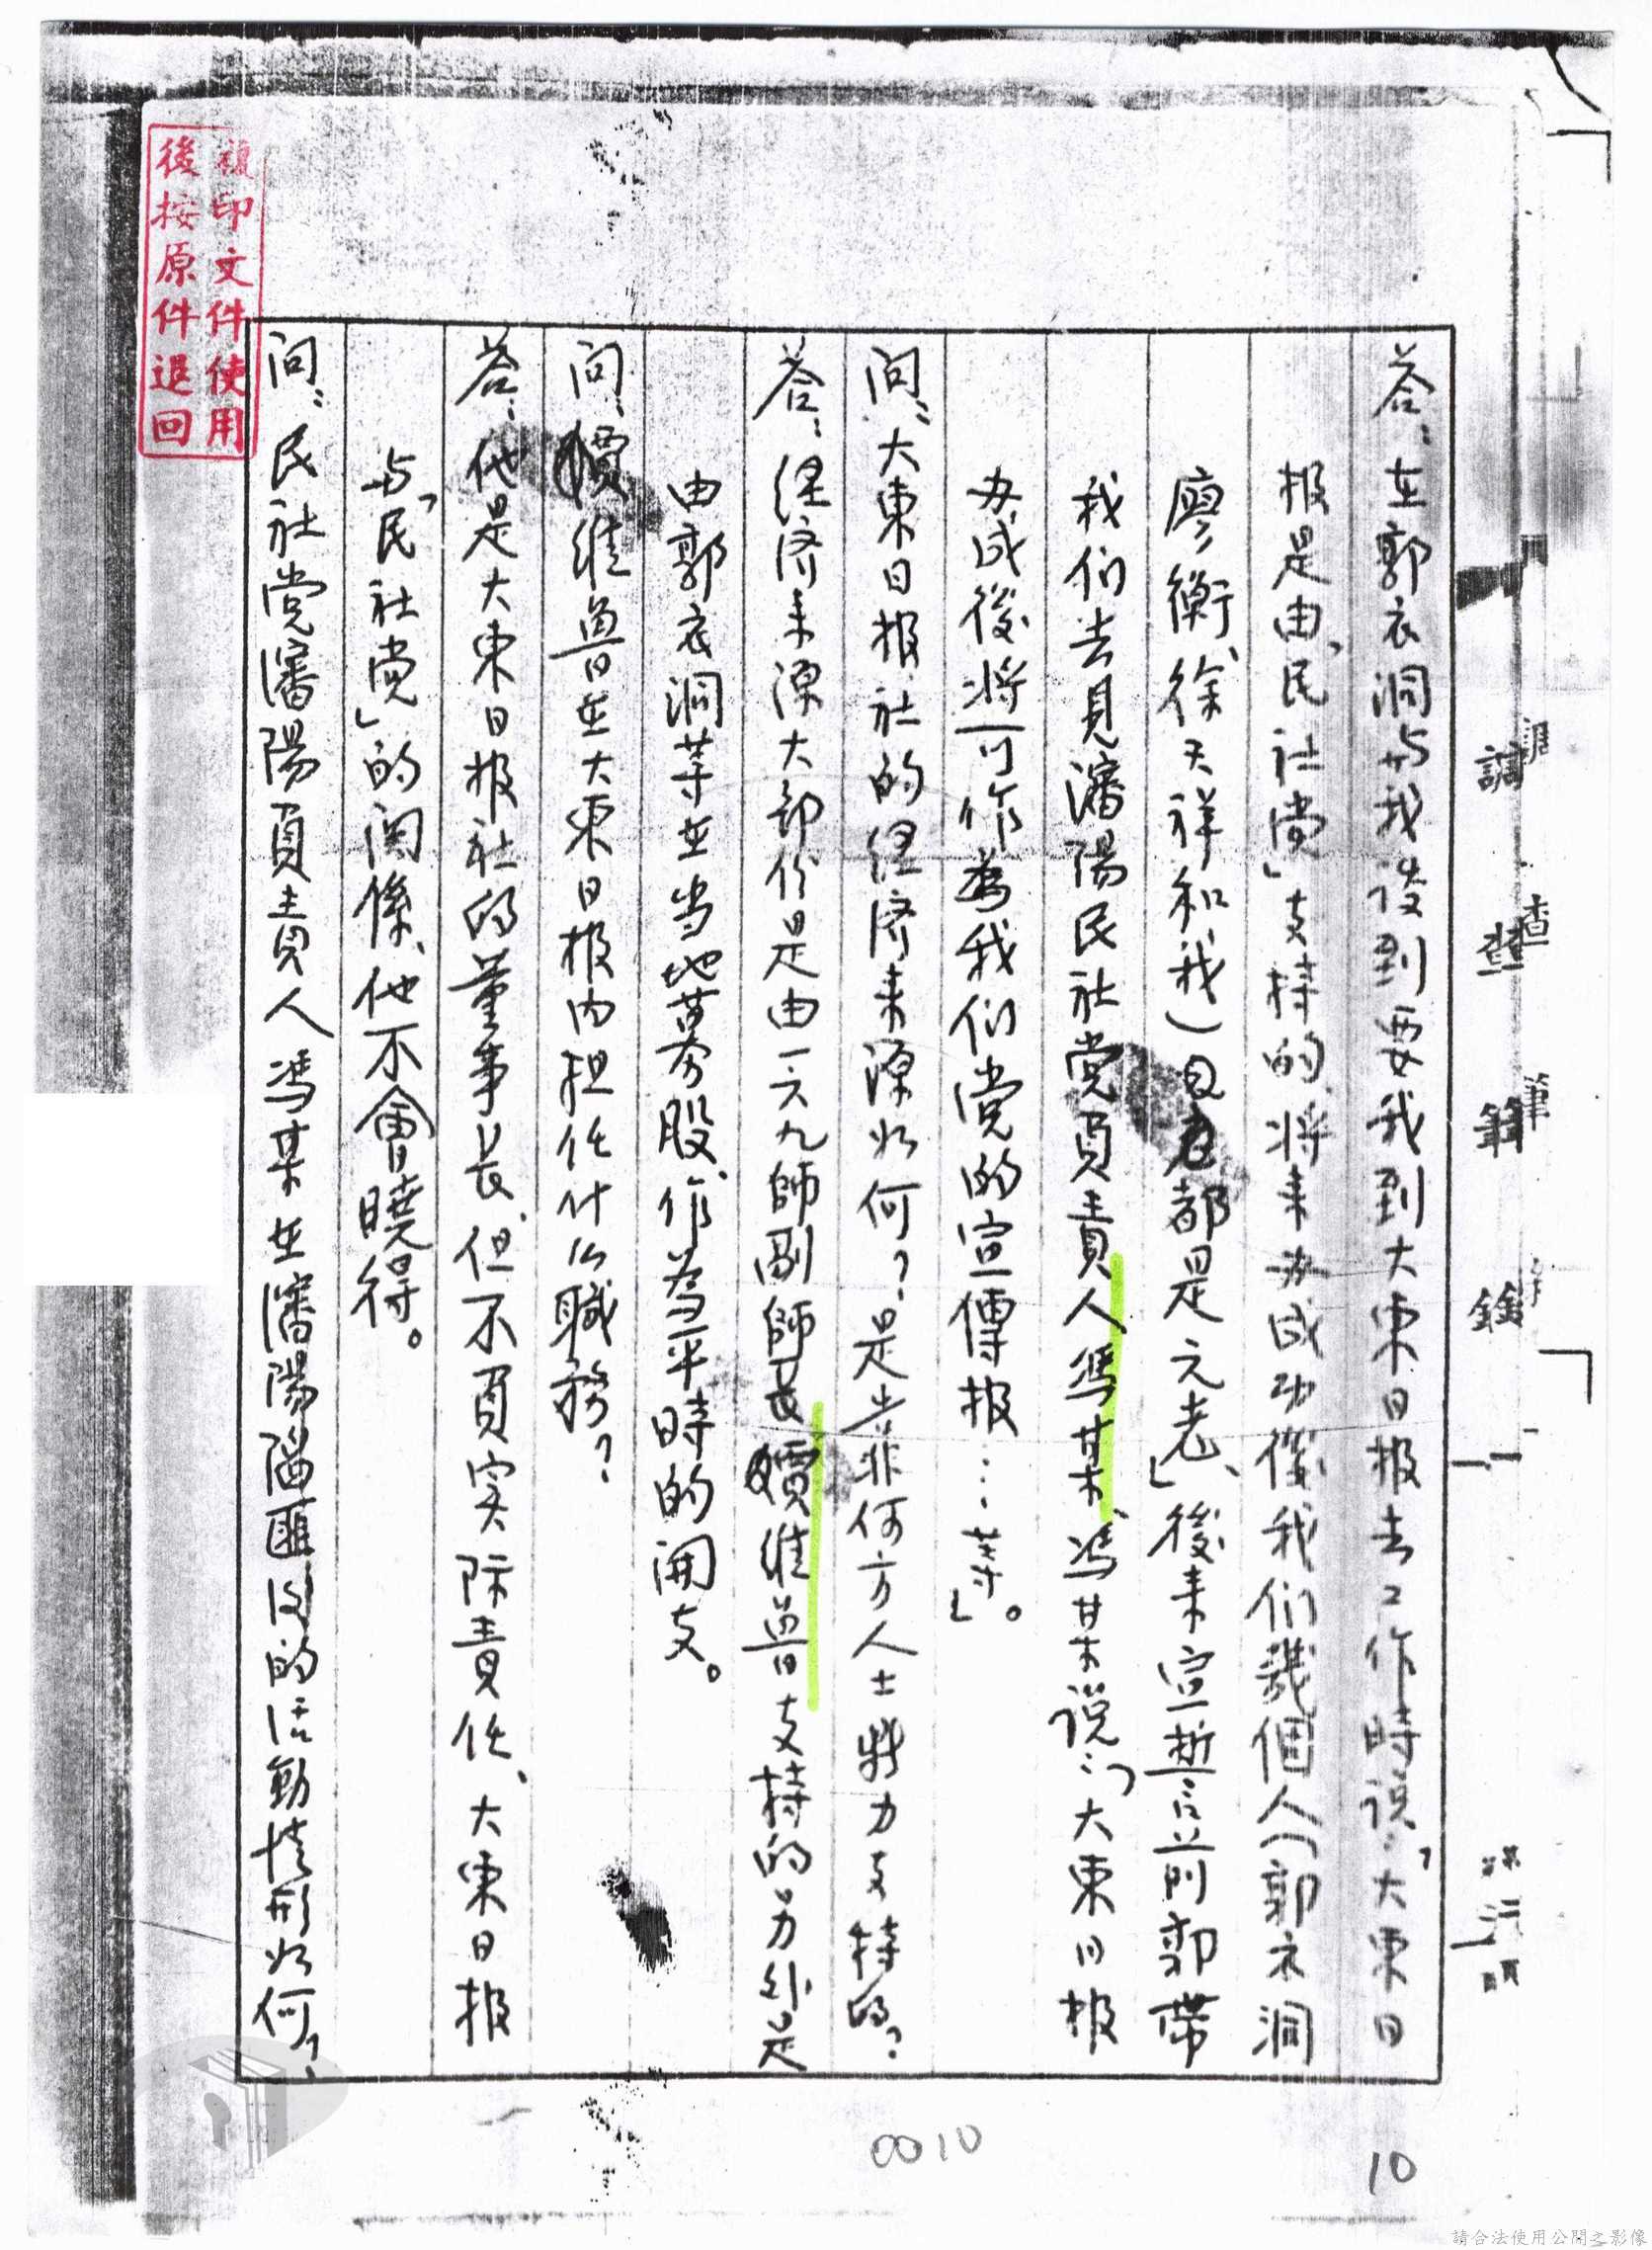 調查筆錄
第 頁
答：在郭衣洞与我谈到要我到大東日报去工作時说：「大東日
报是由「民社党」支持的、将来办成功後我们幾個人（郭衣洞
廖衡、徐天祥和我）自都是元老」、後来宣誓前郭帶
我们去見瀋陽民社党負責人馮某、馮某说：「大東日报
办成後将可作為我们党的宣傳报…等」。
问：大東日报社的经济来源如何？是靠何方人士勢力支持的？
答：经济来源大部份是由一六九師副師長 維魯支持的另外是
由郭衣洞等在当地募股、作為平時的開支。
问： 維魯在大東日报内担任什么職務？
答：他是大東日报社的董事長、但不負实际責任、大東日报
与「民社党」的関係、他不會曉得。
问：民社党瀋陽負責人馮某在瀋陽陷匪後的活動情形如何？
複印文件使用
後按原件退回
0010
10
請合法使用公開之影像